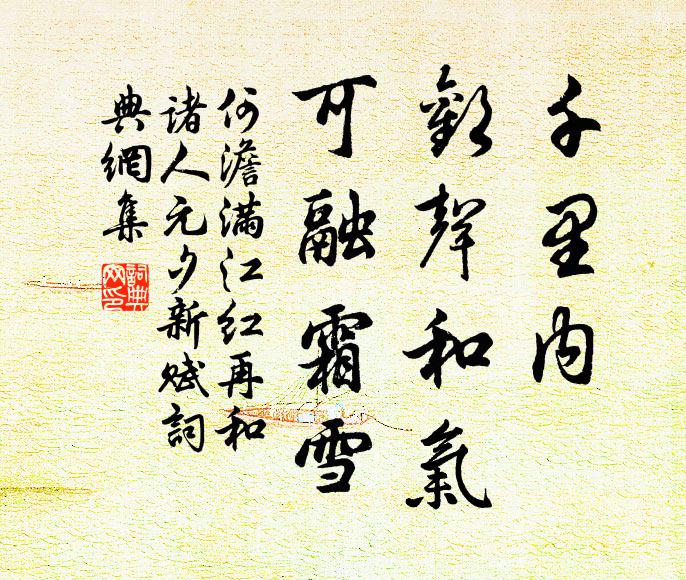 千里内
歡聲和氣
可融霜雪
何澹滿江紅再和
諸人元夕新賦詞
典網集
詞典
网印